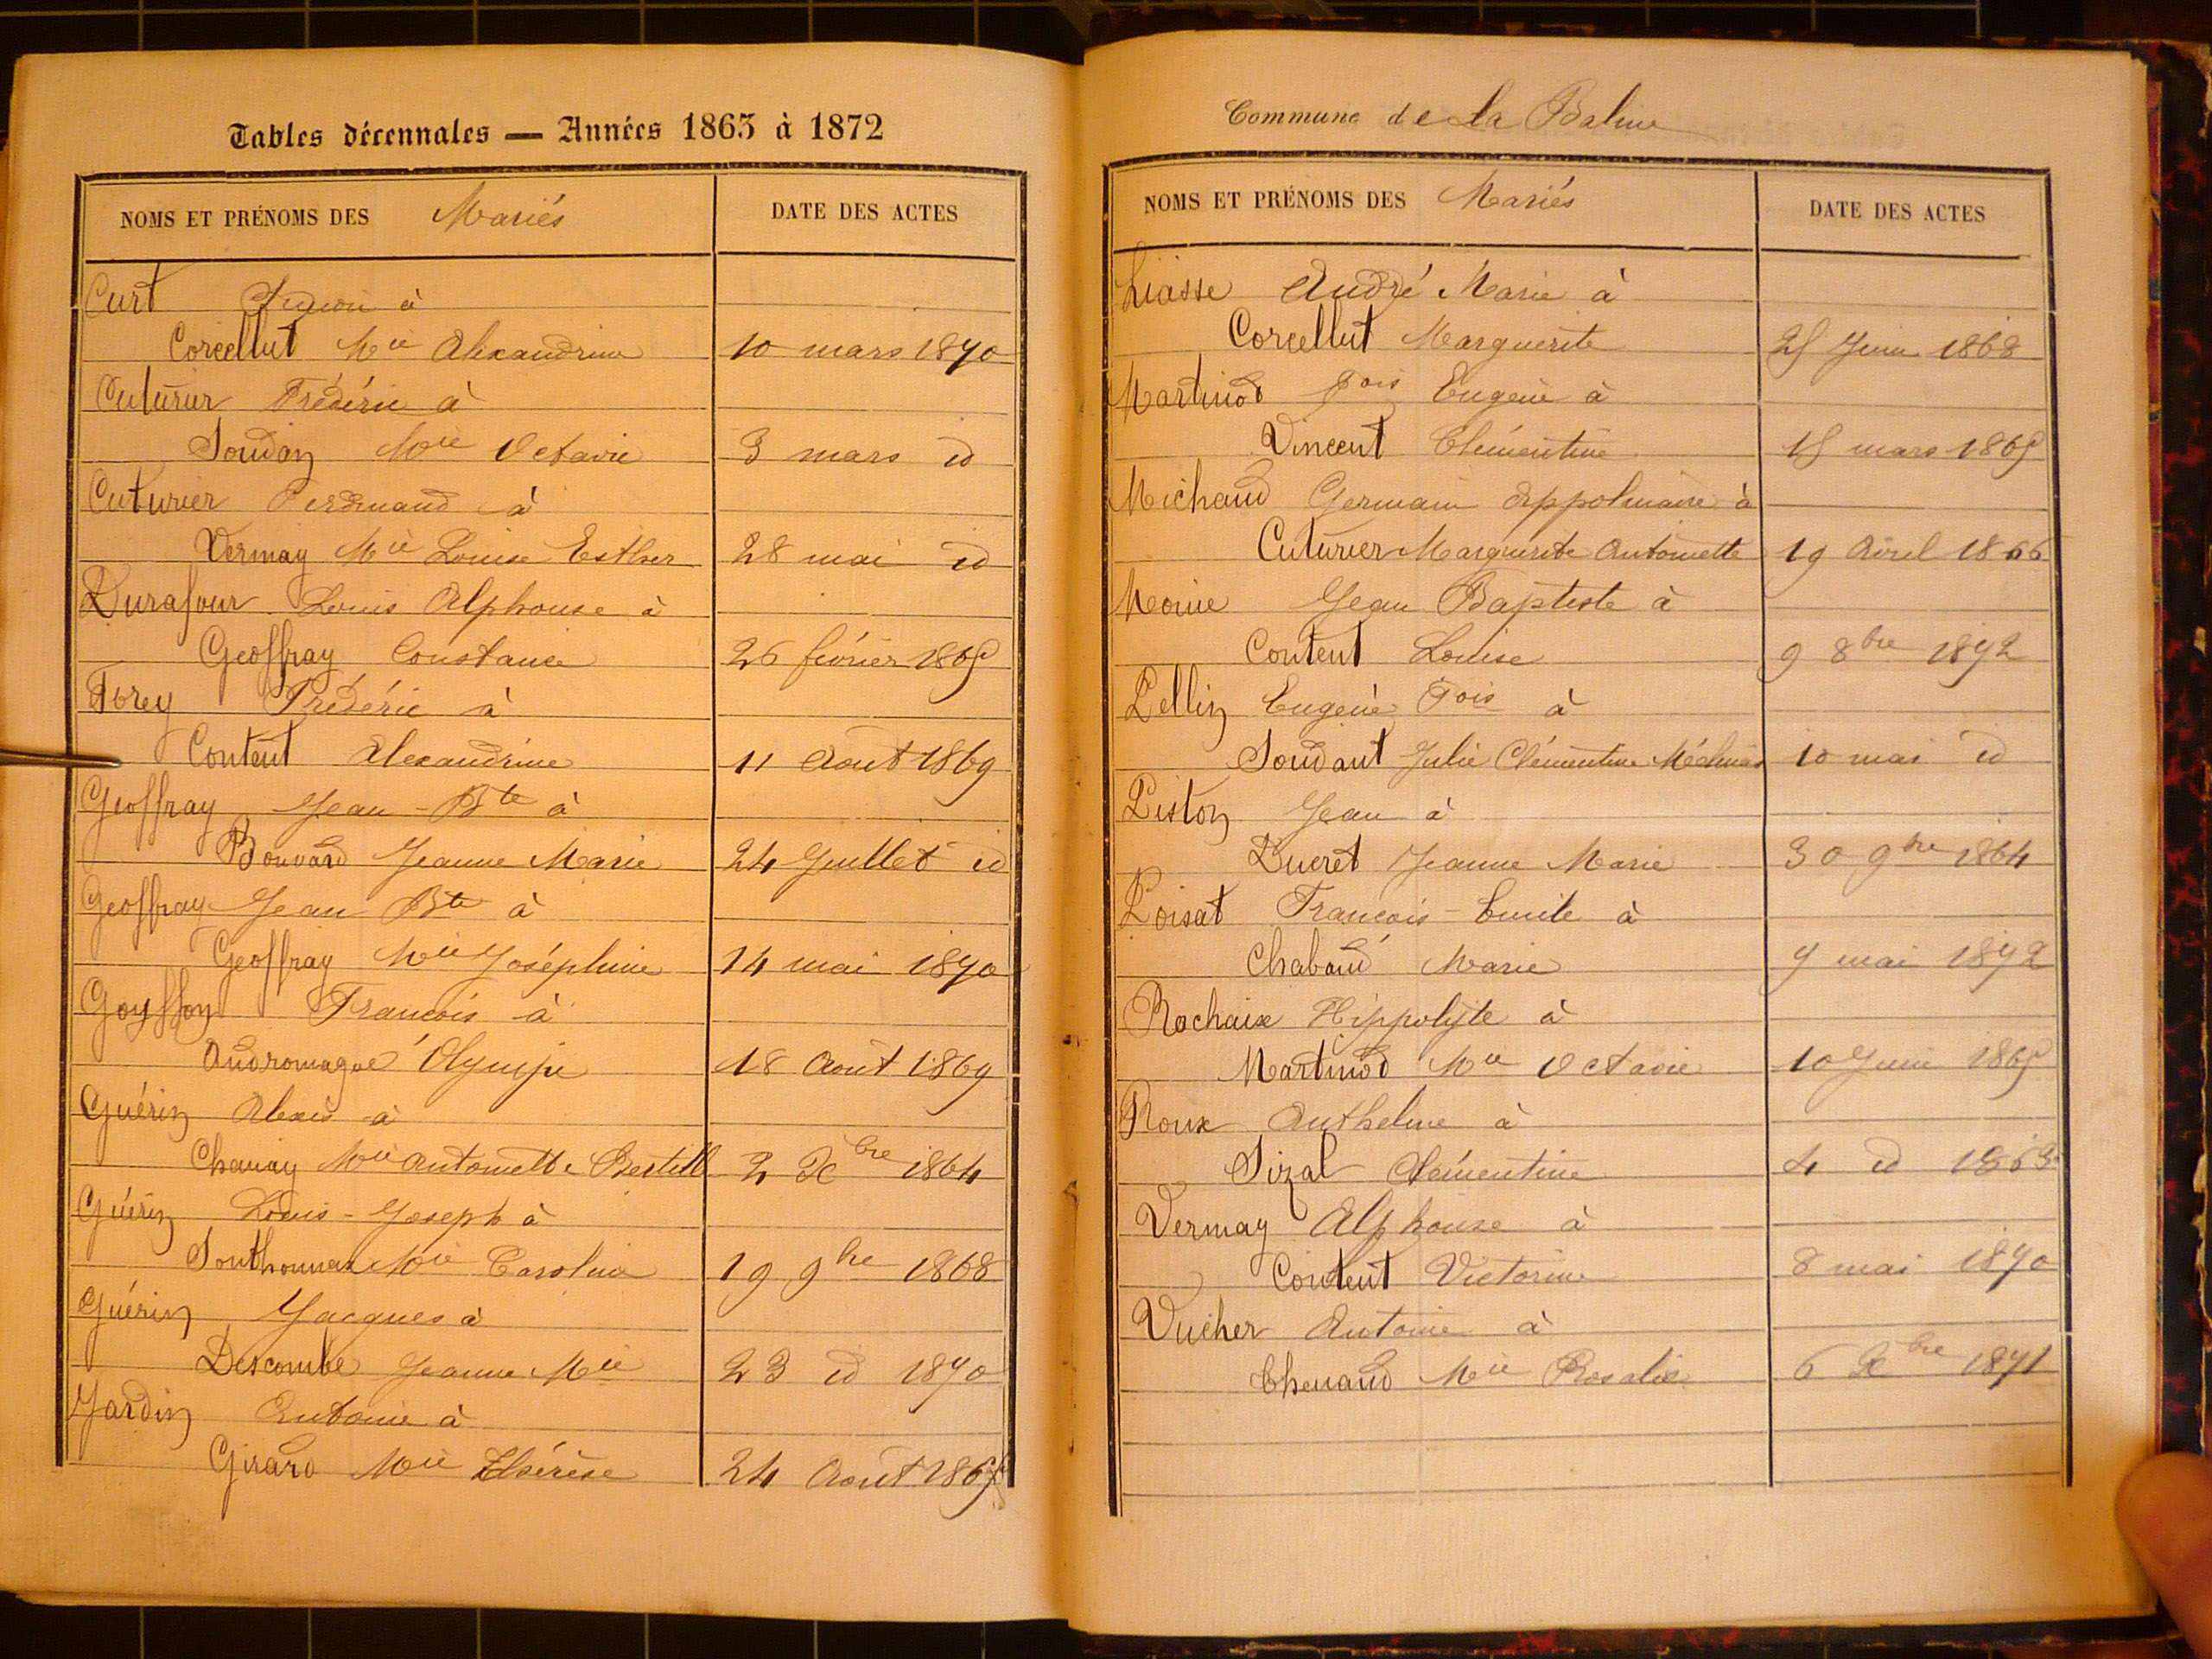 Tables décennales — Années 1863 à 1872
NOMS ET PRÉNOMS DES Mariés DATE DES ACTES
Curt à
Corcellut Mie Alexandrine 10 mars 1870
Cuturier Frédéric à
Soudan Mie Octavie 3 mars id
Cuturier Ferdinand à
Vermay Mie Louise Esther 28 mai id
Durafour Louis Alphonse à
Geoffray Constance 26 février 1865
Forey Frédéric à
Content Alexandrine 11 Août 1869
Geoffray Jean-Bte à
Bouvard Jeanne Marie 24 Juillet id
Geoffray Jean Bte à
Geoffray Mie Joséphine 14 mai 1870
Goyffon François à
Andromaque Olympe 18 Août 1869
Guérin Alexis à
Chanay Mie Antoinette 2 Xbre 1864
Guérin Louis-Joseph à
Sonthonnax Mie Caroline 19 9bre 1868
Guérin Jacques à
Descombe Jeanne Mie 23 id 1870
Jardin Antoine à
Girard Mie Thérèse 24 Août 1865
Commune de La Balme
NOMS ET PRÉNOMS DES Mariés DATE DES ACTES
Liasse André Marie à
Corcellut Marguerite 25 Juin 1868
Martinod fois Eugène à
Vincent Clémentine 15 mars 1865
Michaud Germain Appolinaire à
Cuturier Marguerite Antoinette 19 Avril 1866
Moine Jean Baptiste à
Content Louise 9 8bre 1872
Pellin Eugène Fois à
Soudant Julie Clémentine 10 mai id
Piston Jean à
Ducret Jeanne Marie 30 9bre 1864
Poisat François-Emile à
Chabaud Marie 7 mai 1872
Rochaix Hippolyte à
Martinod Mie Octavie 10 Juin 1865
Roux Anthelme à
Sizal Clémentine 4 id 1863
Vermay Alphonse à
Content Victorine 8 mai 1870
Vucher Antoine à
Chenaud Mie Rosalie 6 Xbre 1871